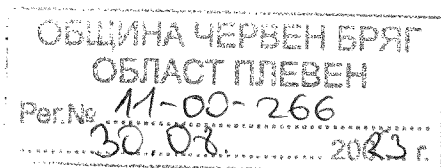 ОБЩИНА ЧЕРВЕН БРЯГ
ОБЛАСТ ПЛЕВЕН
Рег.№ 11-00-266
30.08. 2023 г.